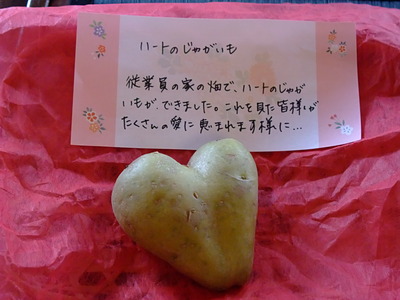 ハートのじゃがいも
従業員の家の畑で、ハートのじゃが
いもが、できました。これを見た皆様が
たくさんの愛に恵まれます様に…